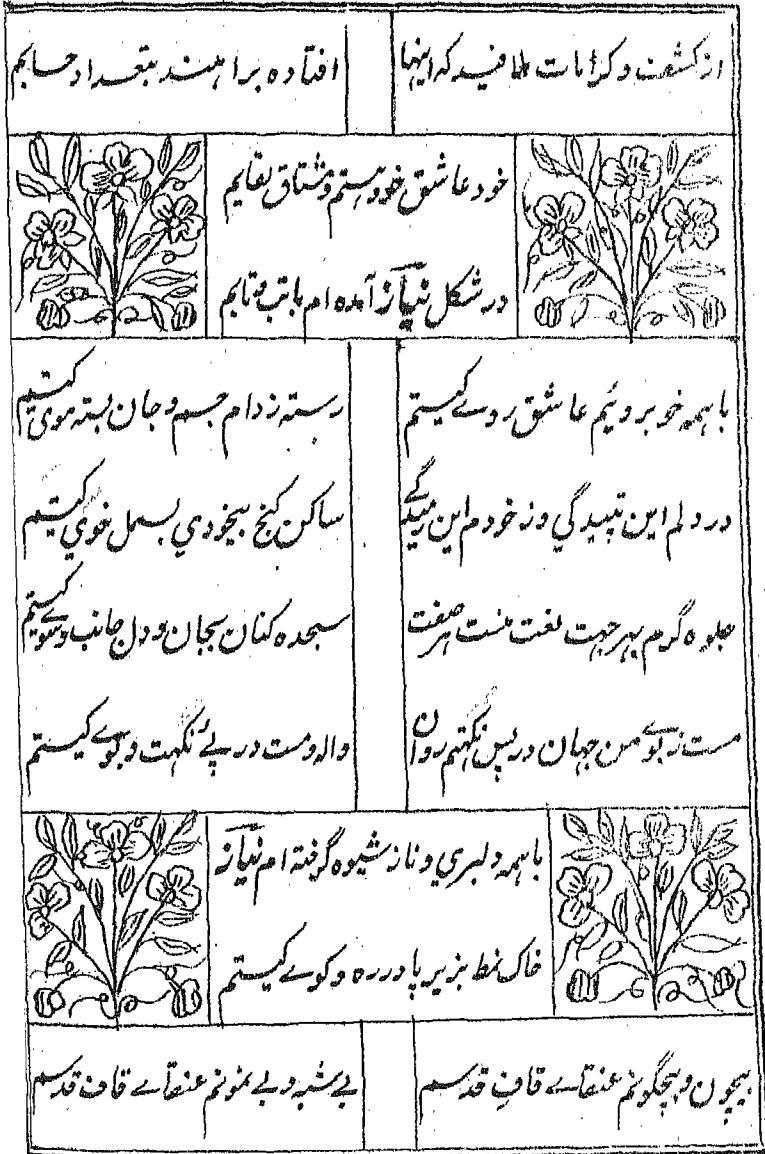 از کشف و کرامات ملافید که اینها
افتاده براهند بتعداد حسابم
خود عاشق خود هستم و مشتاق لقایم
در شکل نیاز آمده ام با تب و تابم
با همه خوبرویم عاشق روے کیستم
رسته ز دام جسم و جان بسته موی کیستم
در دلم این تپیدگی وز خودم این رمیدگے
ساکن کنج بیخودی بسمل خوی کیستم
جلوه گرم بهر جهت نعت منست هر صفت
سجده کنان بجان و دل جانب و سوے کیستم
مست ز بوے من جهان در پس نکهتم روان
واله و مست در پئے نکهت و بوے کیستم
با همه دلبری و ناز شیوه گرفته ام نیاز
خاک نمط بزیر پا در ره و کوے کیستم
بیچون و بیچگونم عنقاے قافِ قدسم
بے شبه و بے نمونم عنقاے قاف قدسم